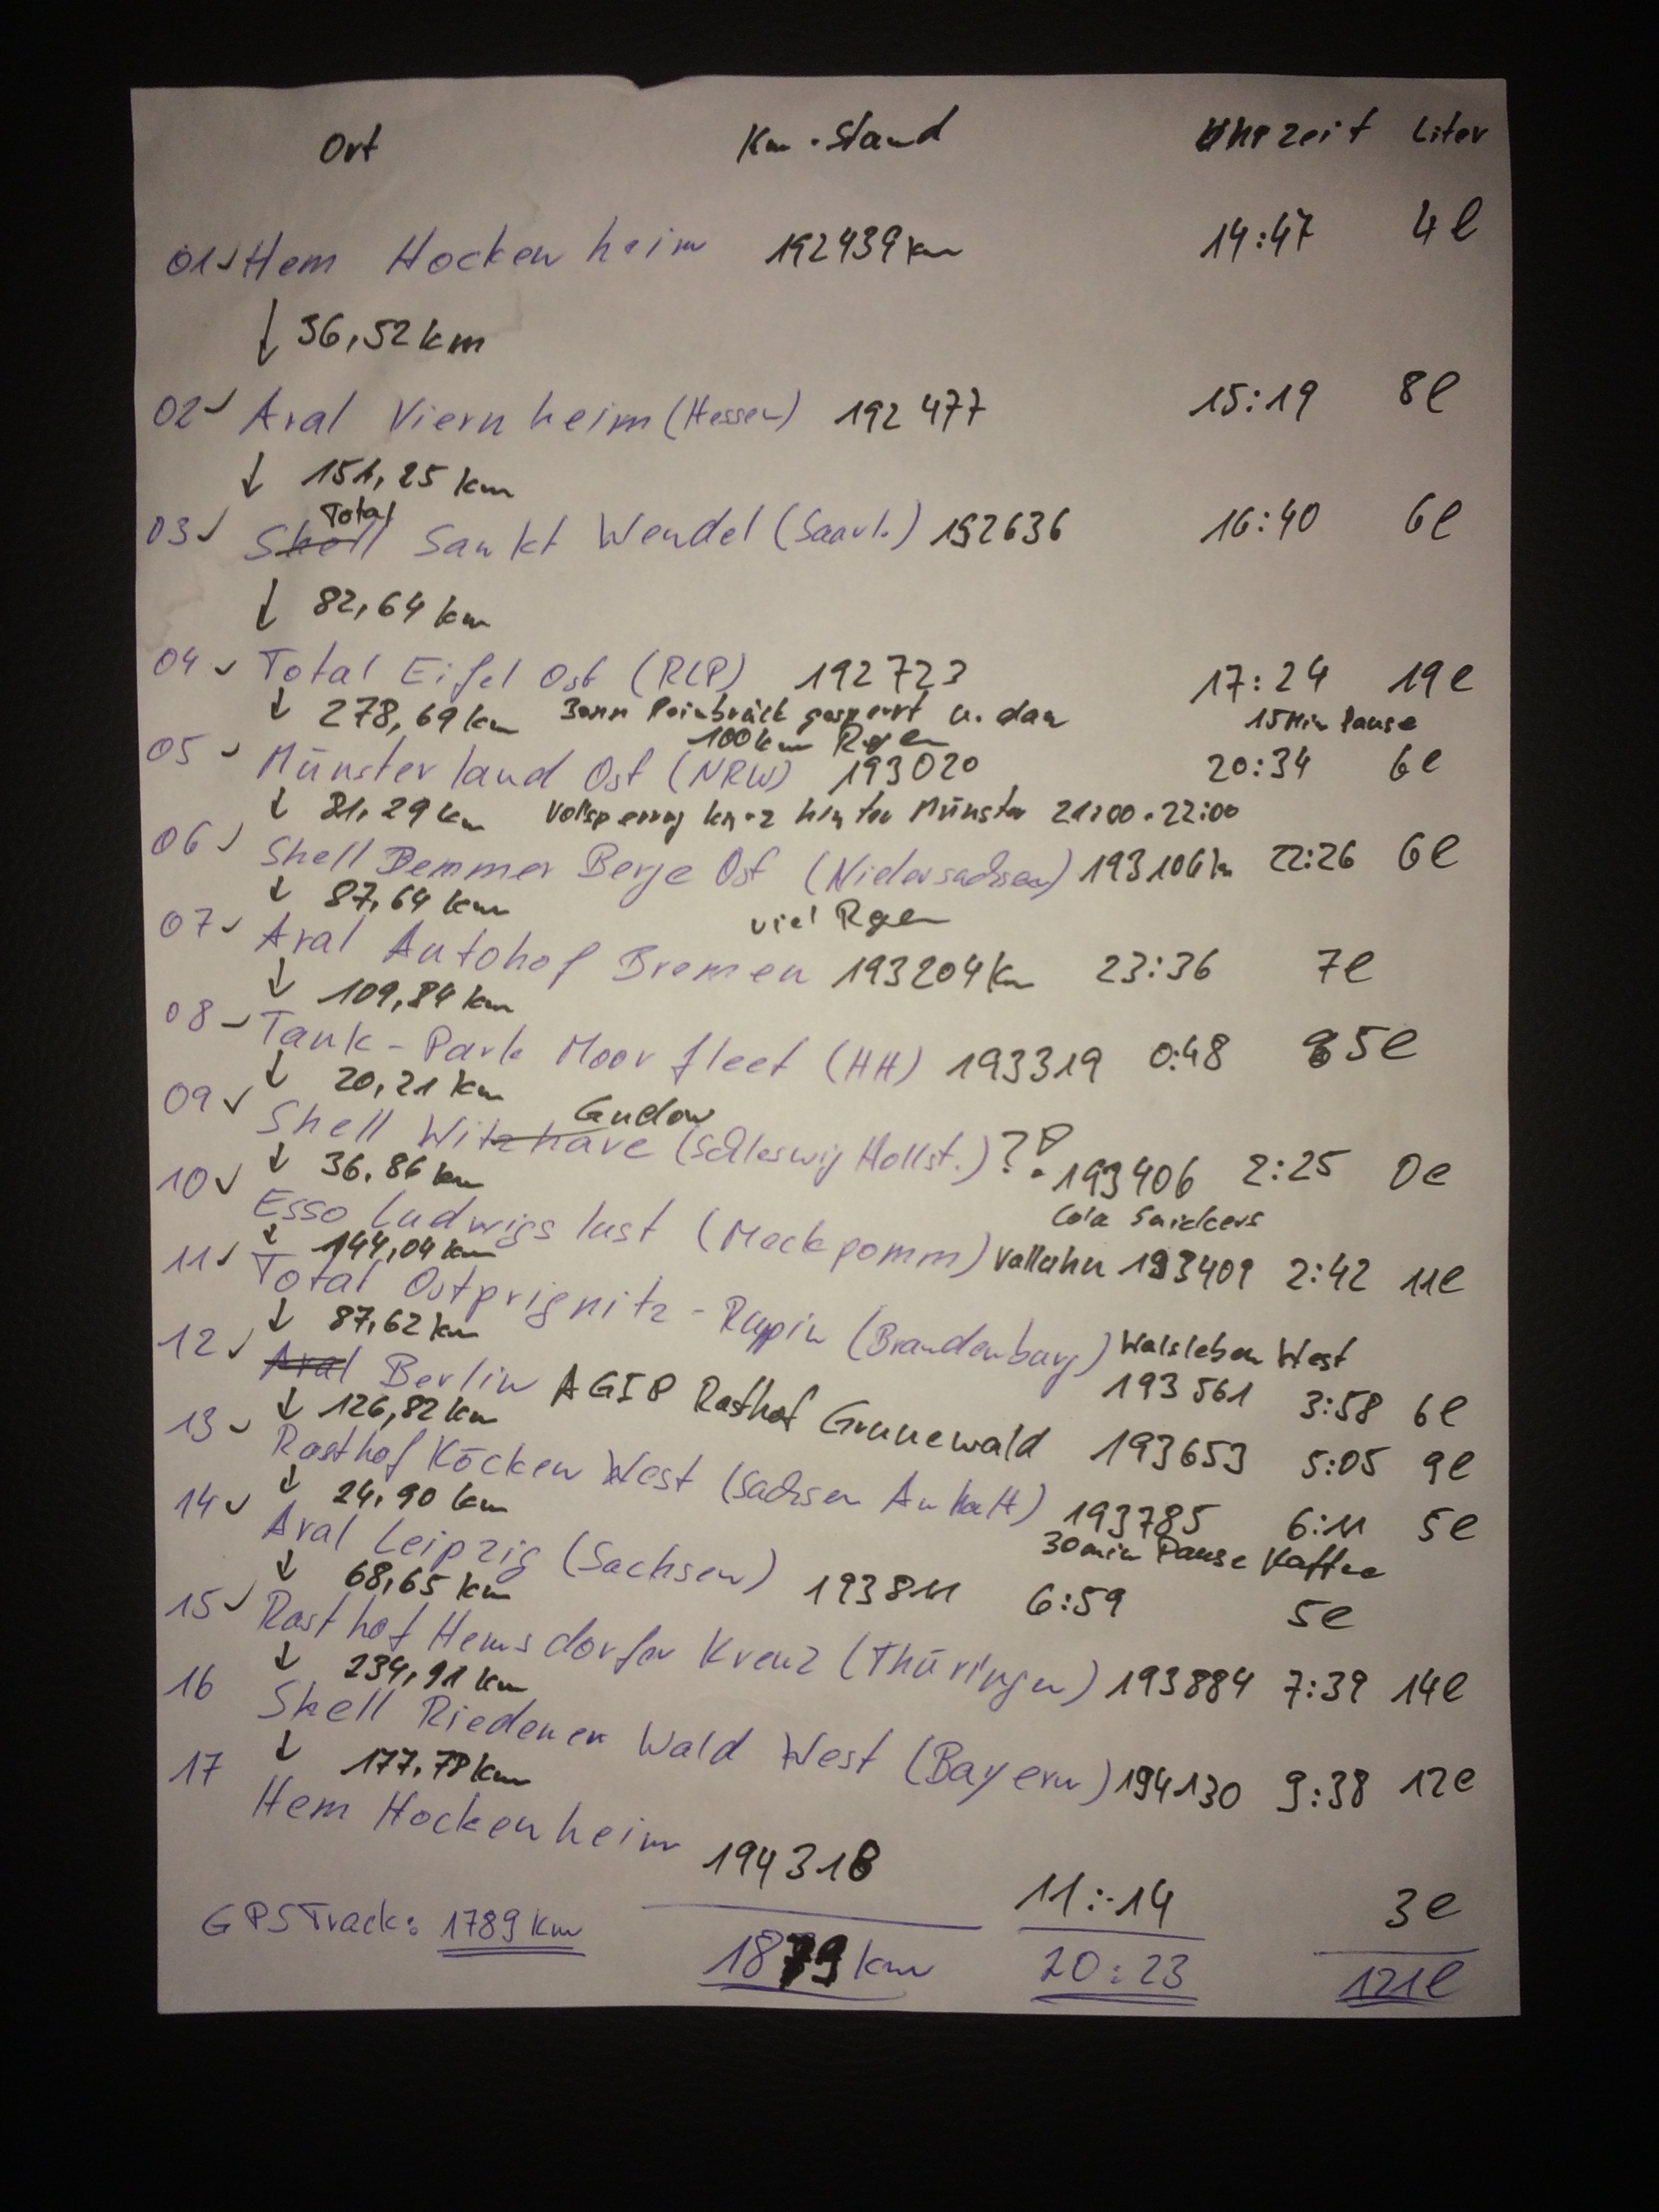 Ort Km-Stand Uhrzeit Liter
01 ✓ Hem Hockenheim 192439 km 14:47 4l
↓ 36,52 km
02 ✓ Aral Viernheim (Hessen) 192 477 15:19 8l
↓ 151,25 km
Total
03 ✓ Shell Sankt Wendel (Saarl.) 192636 16:40 6l
↓ 82,64 km
04 ✓ Total Eifel Ost (RLP) 192723 17:24 19l
↓ 278,69 km Bonn gesperrt u. dan 15 Min Pause
100 km Regen
05 ✓ Münsterland Ost (NRW) 193020 20:34 6l
↓ 81,29 km Vollsperrung kurz hinter Münster 21:00-22:00
06 ✓ Shell Demmer Berge Ost (Niedersachsen) 193106 km 22:26 6l
↓ 87,64 km viel Regen
07 ✓ Aral Autohof Bremen 193204 km 23:36 7l
↓ 109,84 km
08 ✓ Tank-Park Moorfleet (HH) 193319 0:48 5l
↓ 20,21 km
Gudow
09 ✓ Shell Witzhave (Schleswig Hollst.) ?! 193406 2:25 0l
↓ 36,86 km Cola Snickers
10 ✓ Esso Ludwigslust (Meckpomm) Valluhn 193409 2:42 11l
↓ 144,04 km
11 ✓ Total Ostprignitz-Ruppin (Brandenburg) Walsleben West
193561 3:58 6l
↓ 87,62 km
12 ✓ Aral Berlin AGIP Rasthof Grunewald 193653 5:05 9l
↓ 126,82 km
13 ✓ Rasthof Köckern West (Sachsen Anhalt) 193785 6:11 5l
↓ 24,90 km 30 min Pause Kaffee
14 ✓ Aral Leipzig (Sachsen) 193811 6:59 5l
↓ 68,65 km
15 ✓ Rasthof Hermsdorfer Kreuz (Thüringen) 193884 7:39 14l
↓ 234,91 km
16 Shell Riedener Wald West (Bayern) 194130 9:38 12l
↓ 177,78 km
17 Hem Hockenheim 194318 11:14 3l
GPS Track: 1789 km 1879 km 20:23 121l